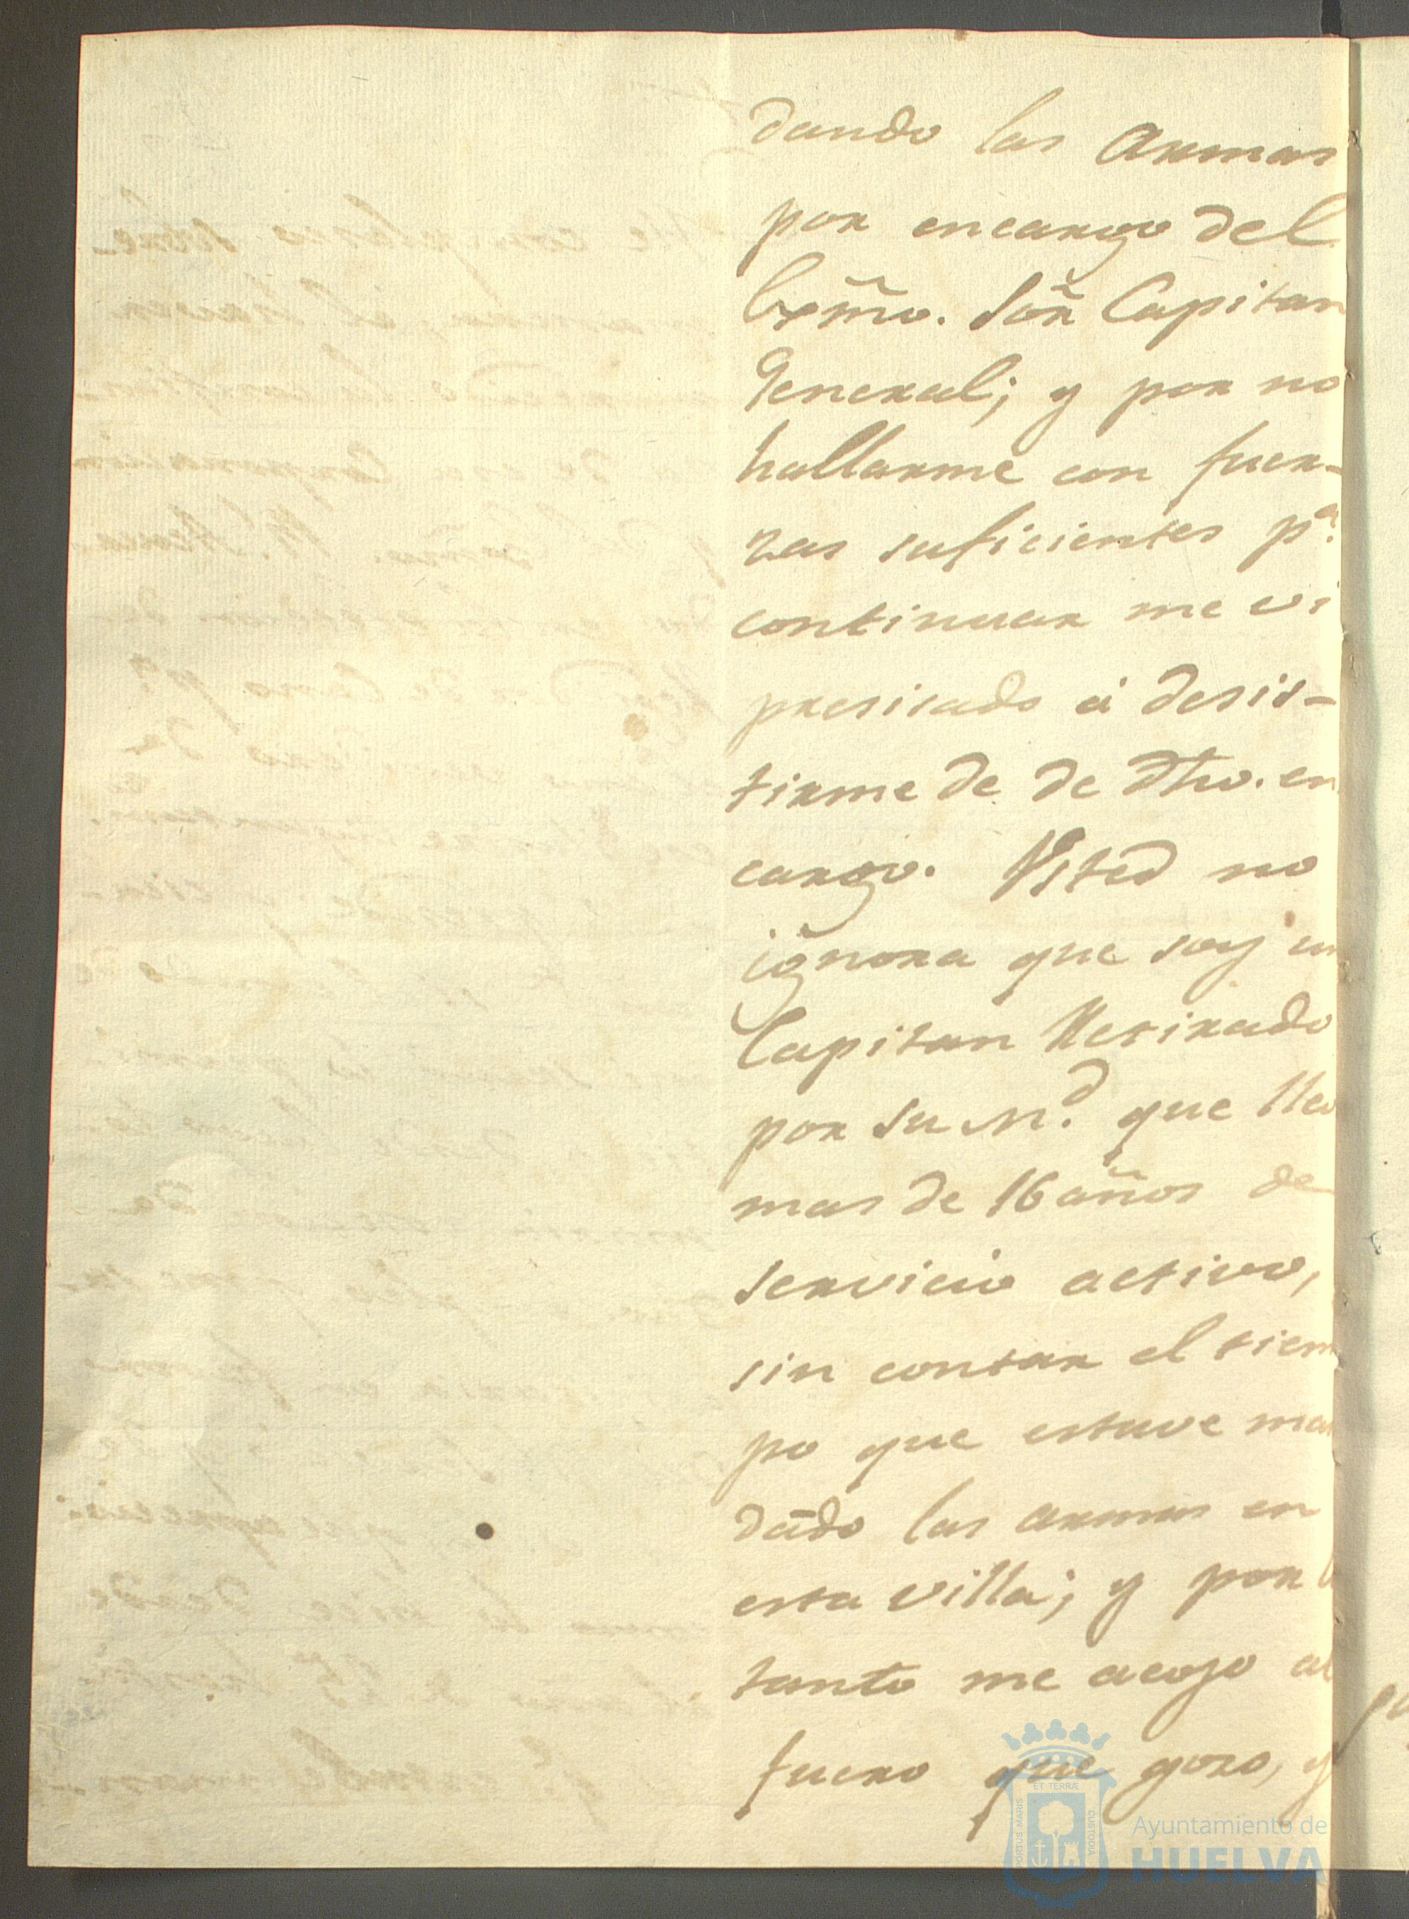 dando las Armas
por encargo del
Exm̃o. Sor̃ Capitan
General; y por no
hallarme con fuer-
zas suficientes pª.
continuar me vi
presisado á desis-
tirme de de dho. en
cargo. Usted no
ignora que soy un
Capitan Retirado
por su M.d que llevo
mas de 16 años de
servicio activo,
sin contar el tiem
po que estuve man
dãdo las armas en
esta villa; y por lo
tanto me acojo al
fuero que gozo, y
PORTUS MARIS ET TERRÆ CUSTODIA
Ayuntamiento de
HUELVA